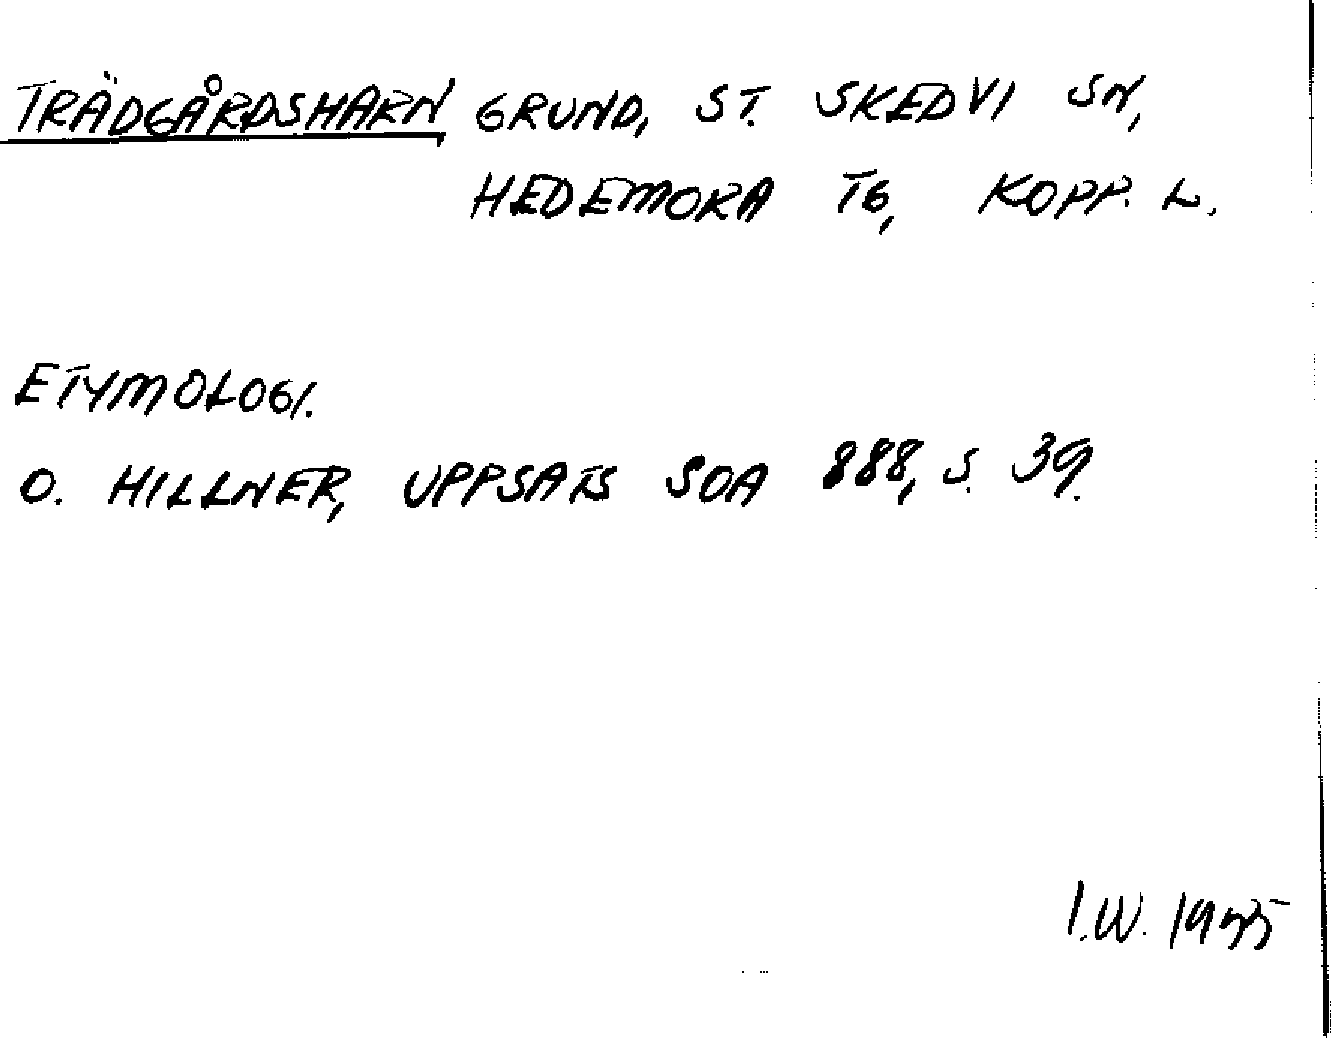 TRÄDGÅRDSHARN, GRUND, ST. SKEDVI SN,
HEDEMORA TG, KOPP. L.
ETYMOLOGI.
O. HILLNER, UPPSATS SOA 888, S. 39.
I.W. 1975